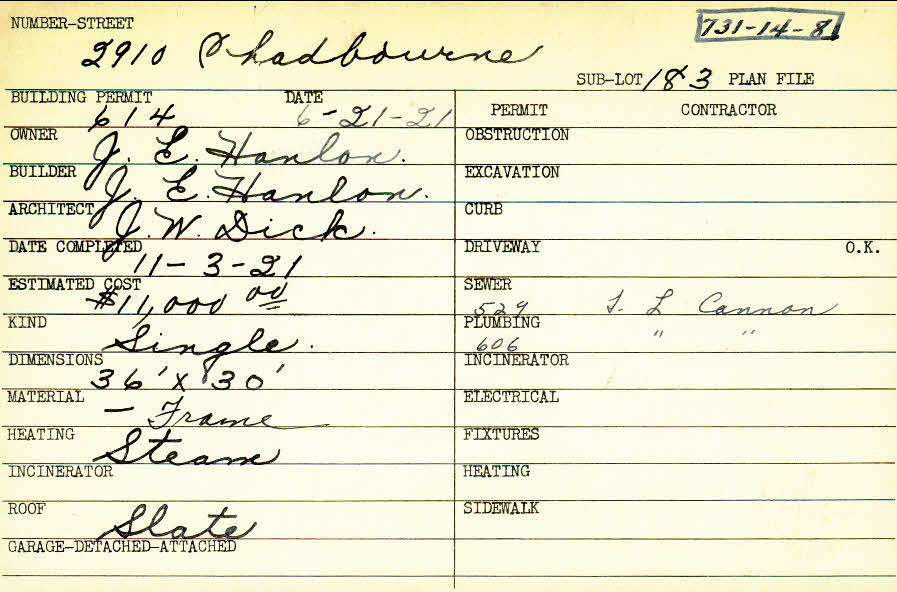 NUMBER-STREET
731-14-8
2910 Chadbourne
SUB-LOT 183 PLAN FILE
BUILDING PERMIT DATE
614 6-21-21
OWNER
J. E. Hanlon.
BUILDER
J. E. Hanlon.
ARCHITECT
J. W. Dick.
DATE COMPLETED
11-3-21
ESTIMATED COST
$11,000 00
KIND
Single.
DIMENSIONS
36' x 30'
MATERIAL
— Frame
HEATING
Steam
INCINERATOR
ROOF
Slate
GARAGE-DETACHED-ATTACHED
PERMIT CONTRACTOR
OBSTRUCTION
EXCAVATION
CURB
DRIVEWAY O.K.
SEWER
529 T. L Cannon
PLUMBING
606 " "
INCINERATOR
ELECTRICAL
FIXTURES
HEATING
SIDEWALK